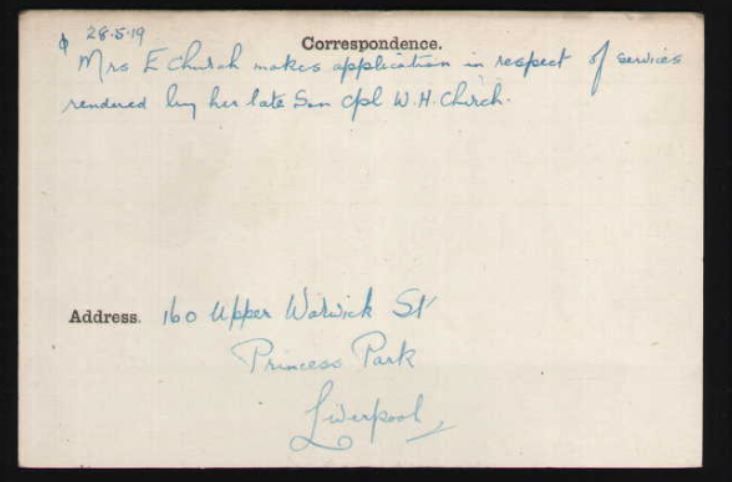 28.5.19
Correspondence.
Mrs E Church makes application in respect of services
rendered by her late Son Cpl W.H. Church.
Address. 160 Upper Warwick St
Princess Park
Liverpool